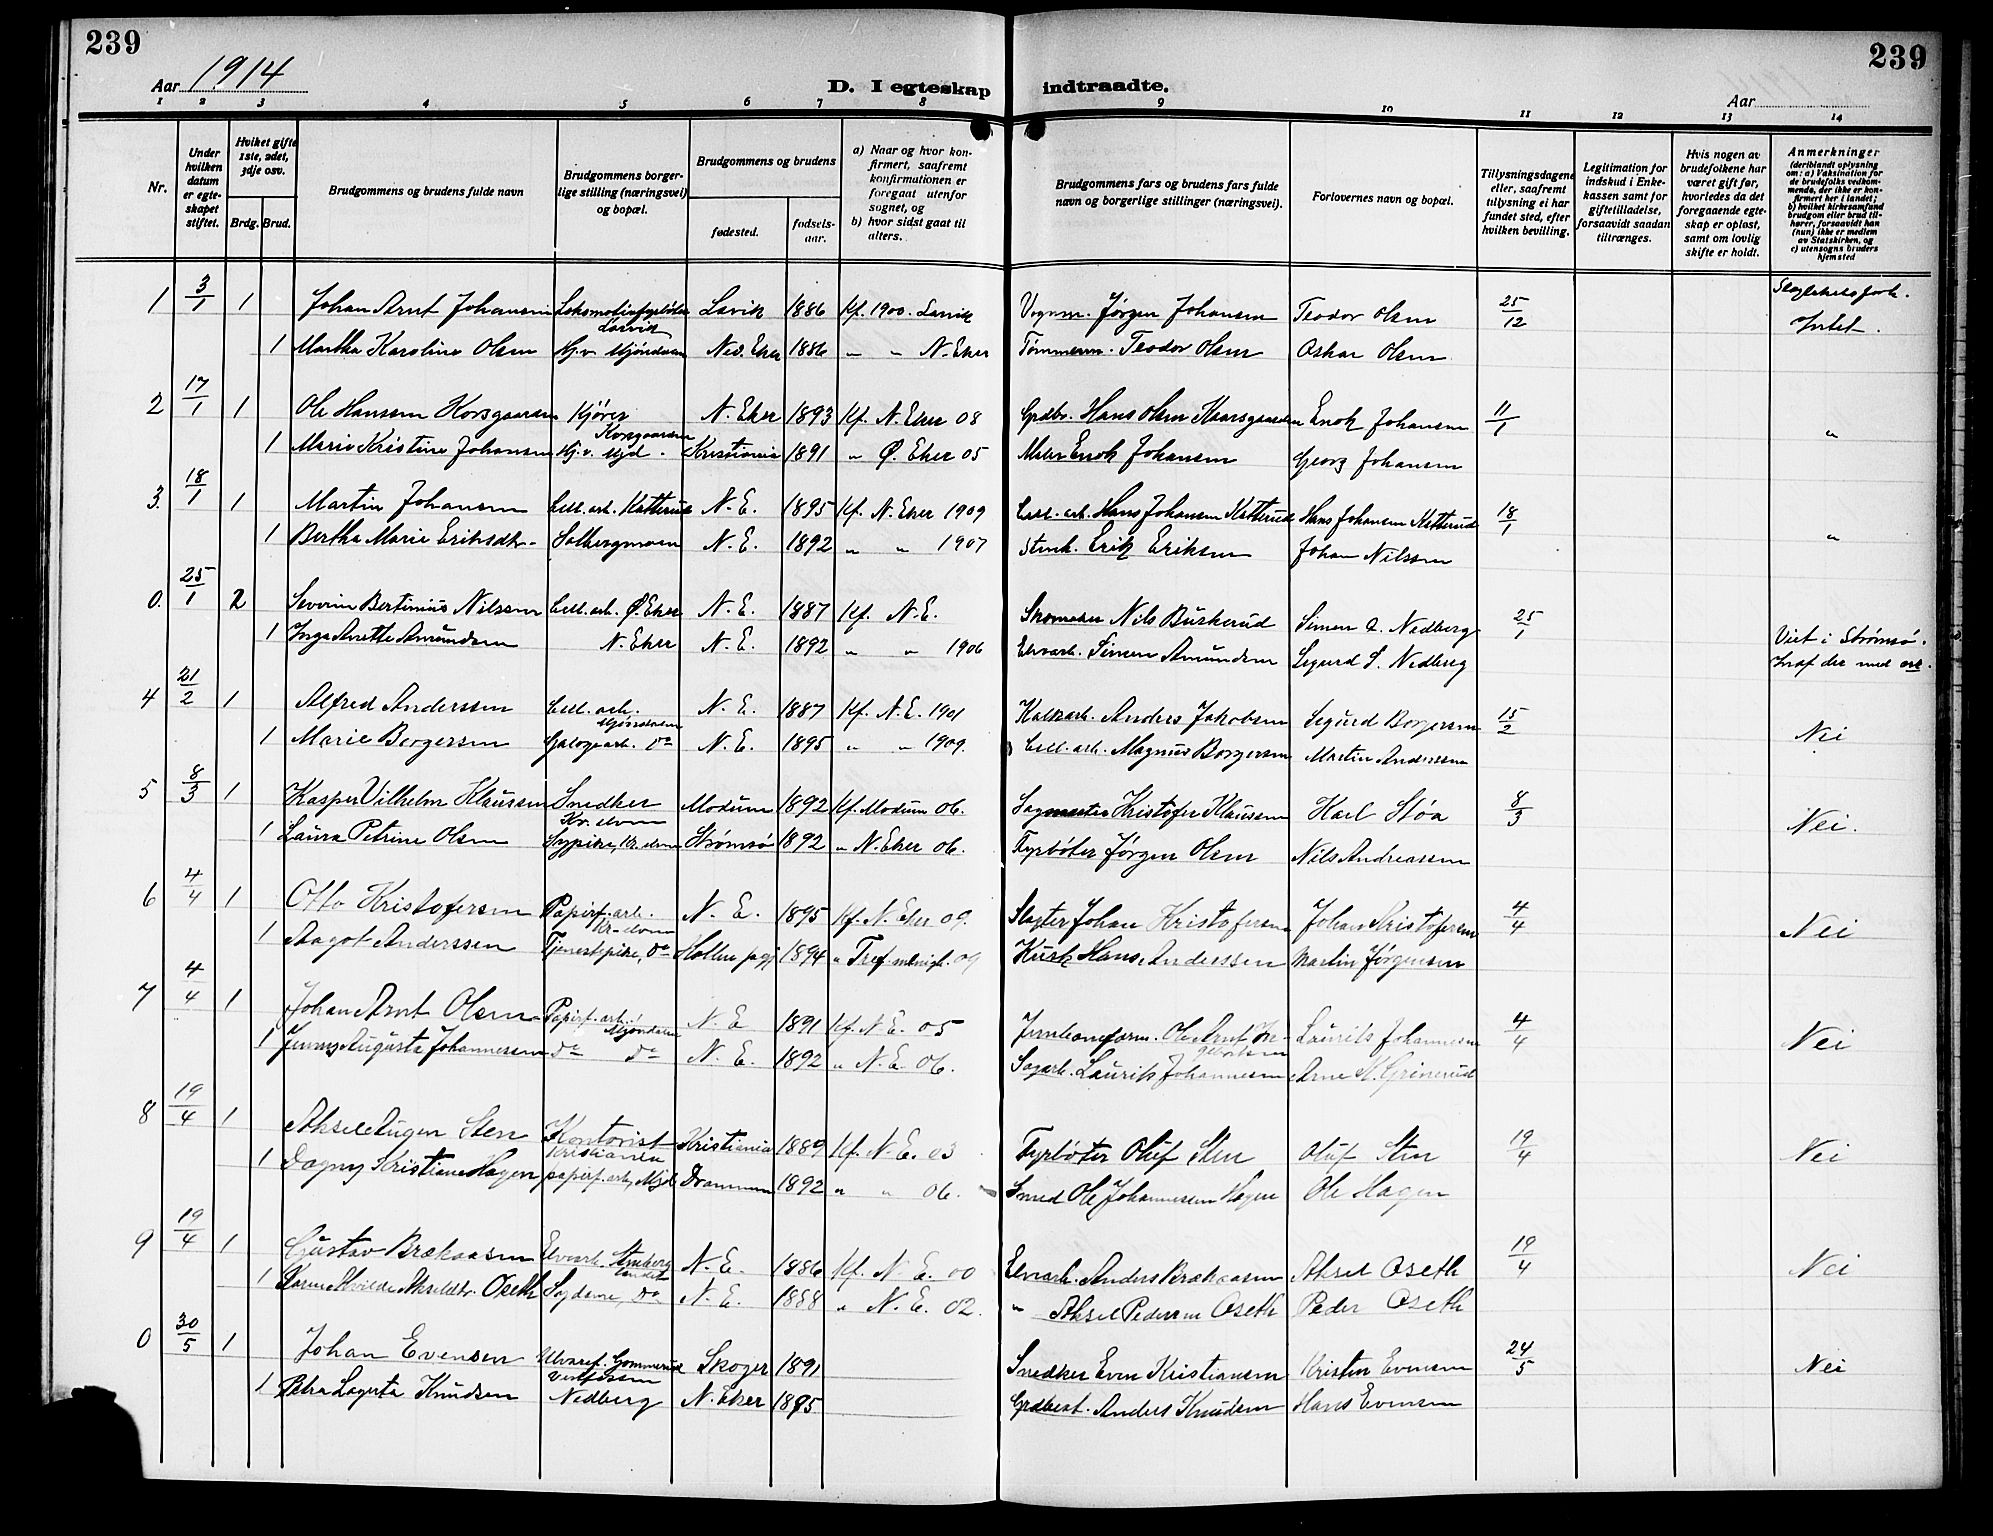 239
239
Aar 1914
D. I egteskap indtraadte.
Aar
1 2 3 4 5 6 7 8 9 10 11 12 13 14
Nr.
Under hvilken datum er egteskapet stiftet.
Hvilket gifte 1ste, 2det, 3dje osv.
Brdg. Brud.
Brudgommens og brudens fulde navn
Brudgommens borgerlige stilling (næringsvei) og bopæl.
Brudgommens og brudens
fødested.
fødselsaar.
a) Naar og hvor konfirmert, saafremt konfirmationen er foregaat utenfor sognet, og
b) hvor sidst gaat til alters.
Brudgommens fars og brudens fars fulde navn og borgerlige stillinger (næringsvei).
Forlovernes navn og bopæl.
Tillysningsdagene eller, saafremt tillysning ei har fundet sted, efter hvilken bevilling.
Legitimation for indskud i Enkekassen samt for giftetilladelse, forsaavidt saadan tiltrænges.
Hvis nogen av brudefolkene har været gift før, hvorledes da det foregaaende egteskap er opløst, samt om lovlig skifte er holdt.
Anmerkninger
(deriblandt oplysning om: a) Vaksination for de brudefolks vedkommende, der ikke er konfirmert her i landet; b) hvilket kirkesamfund brudgom eller brud tilhører, forsaavidt han (hun) ikke er medlem av Statskirken, og c) utensogns bruders hjemsted
1 3/1 1 Johan Arnt Johansen Larvik 1886 Kf. 1900. Larvik Vognm. Jørgen Johansen Teodor Olsen 25/12 Slegtskabsforh.
Larvik Intet.
1 Martha Karoline Olsen Hj.v. Mjøndalen Ned. Eker 1886 " " N. Eker Tømmerm. Teodor Olsen Oskar Olsen
2 17/1 1 Ole Hansen Korsgaarden Kjører N. Eker 1893 Kf. N. Eker 08 Grdbr. Hans Olsen Kaarsgaarden Enok Johansen 11/1 "
Korsgaarden
1 Marie Kristine Johansen Hj.v. Mjd. Kristiania 1891 " Ø. Eker 05 Maler Enok Johansen Georg Johansen
3. 18/1 1 Martin Johansen Cell. arb. Katterud N. E. 1895 Kf. N. Eker 1909 Cell. arb. Hans Johansen Katterud Hans Johansen Ketterud 18/1 "
1 Bertha Marie Eriksdtr. Solbergmoen N. E. 1892 " " 1907 Stenh. Erik Eriksen Johan Nilssen
0. 25/1 2 Severin Bertinius Nilssen Cell. arb. Ø. Eker N. E. 1887 Kf. N. E. Skomaker Nils Buskerud Simen A. Nedberg 25/1
1 Inga Anette Amundsen N. Eker N. E. 1892 " " 1906 Elvarb. Simen Amundsen Sigurd S. Nedberg Viet i Strømsø.
4 21/2 1 Alfred Anderssen Cell. arb. N. E. 1887 Kf. N. E. 1901 Kalkarb. Anders Jakobsen Sigurd Borgersen 15/2 Nei
Mjøndalen
1 Marie Borgersen Galogearb. Do N. E. 1895 " " 1909. Cell. arb. Magnus Borgersen Martin Anderssen
5 8/3 1 Kasper Vilhelm Klaussen Snedker Modum 1892 Kf. Modum 06. Sagmester Kristofer Klaussen Karl Støa 8/3 Nei.
1 Laura Petrine Olsen Sypike, Strømsø 1892 " N. Eker 06. Fyrbøter Jørgen Olsen Nils Andreassen
6 4/4 1 Otto Kristofersen Papirf. arb. N. E. 1895 Kf. N. Eker 09. Slagter Johan Kristofersen Johan Kristofersen 4/4 Nei
1 Aagot Anderssen Tjenestpike, Do 1894 " Tref. menigh. 09 Kusk Hans Anderssen Martin Jørgensen
7 4/4 1 Johan Arnt Olsen Papirf. arb. N. E 1891 Kf. N. E. 05 Ole Arnt Laurits Johannesen 4/4 Nei
Mjøndalen
1 Jenny Augusta Johannesen Do Do N. E. 1892 " N. E. 06. Sagarb. Laurits Johannesen Arne M. Grinerud
8 19/4 1 Aksel Eugen Sten Kontorist Kristiania 1889 Kf. N. E. 03 Fyrbøter Oluf Sten Oluf Sten 19/4 Nei
Kristiania
1 Dagny Kristiane Hagen papirf. arb, Mjd. Drammen 1892 " " 06. Smed Ole Johannesen Hagen Ole Hagen
9 19/4 1 Gustav Brækaasen Elvearb. N. E. 1886 Kf. N. E. 00 Elvarb. Anders Brækaasen Aksel Oseth 19/4 Nei
1 Oseth Do N. E. 1888 " N. E. 02. " Aksel Pedersen Oseth Peder Oseth
0 30/5 1 Johan Evensen Gommerud Skoger 1891 Snedker Even Kristiansen Kristen Evensen 24/5 Nei
Vestfossen
1 Petra Lagerta Knudsen Nedberg N. Eker 1895 Grdbest. Anders Knudsen Hans Evensen